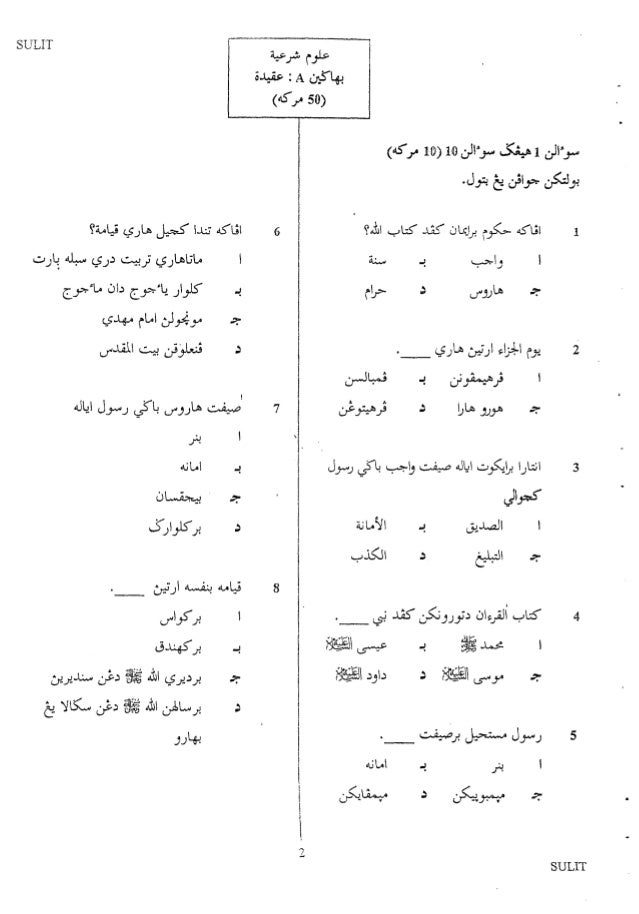 SULIT
علوم شرعية
بهاڬين A : عقيدة
(50 مركه)
سوءالن 1 هيڠڬ سوءالن 10 (10 مركه)
بولتكن جواڤن يڠ بتول.
1 اڤاكه حكوم برايمان كڤد كتاب الله؟
ا واجب ب سنة
ج هاروس د حرام
2 يوم الجزاء ارتين هاري ____.
ا ڤرهيمڤونن ب ڤمبالسن
ج هورو هارا د ڤرهيتوڠن
3 انتارا برايكوت اياله صيفت واجب باڬي رسول
كچوالي
ا الصديق ب الأمانة
ج التبليغ د الكذب
4 كتاب القرءان دتورونكن كڤد نبي ____.
ا محمد ﷺ ب عيسى
ج موسى د داود
5 رسول مستحيل برصيفت ____.
ا بنر ب امانه
ج ميمبوپيكن د ميمڤايكن
6 اڤاكه تندا كچيل هاري قيامة؟
ا ماتاهاري تربيت دري سبله بارت
ب كلوار يأجوج دان مأجوج
ج مونچولن امام مهدي
د ڤنعلوقن بيت المقدس
7 صيفت هاروس باڬي رسول اياله
ا بنر
ب امانه
ج بيجقسان
د بركلوارڬ
8 قيامه بنفسه ارتين ____.
ا بركواس
ب بركهندق
ج برديري الله ﷻ دڠن سنديرين
د برسالهن الله ﷻ دڠن سڬالا يڠ
بهارو
2
SULIT